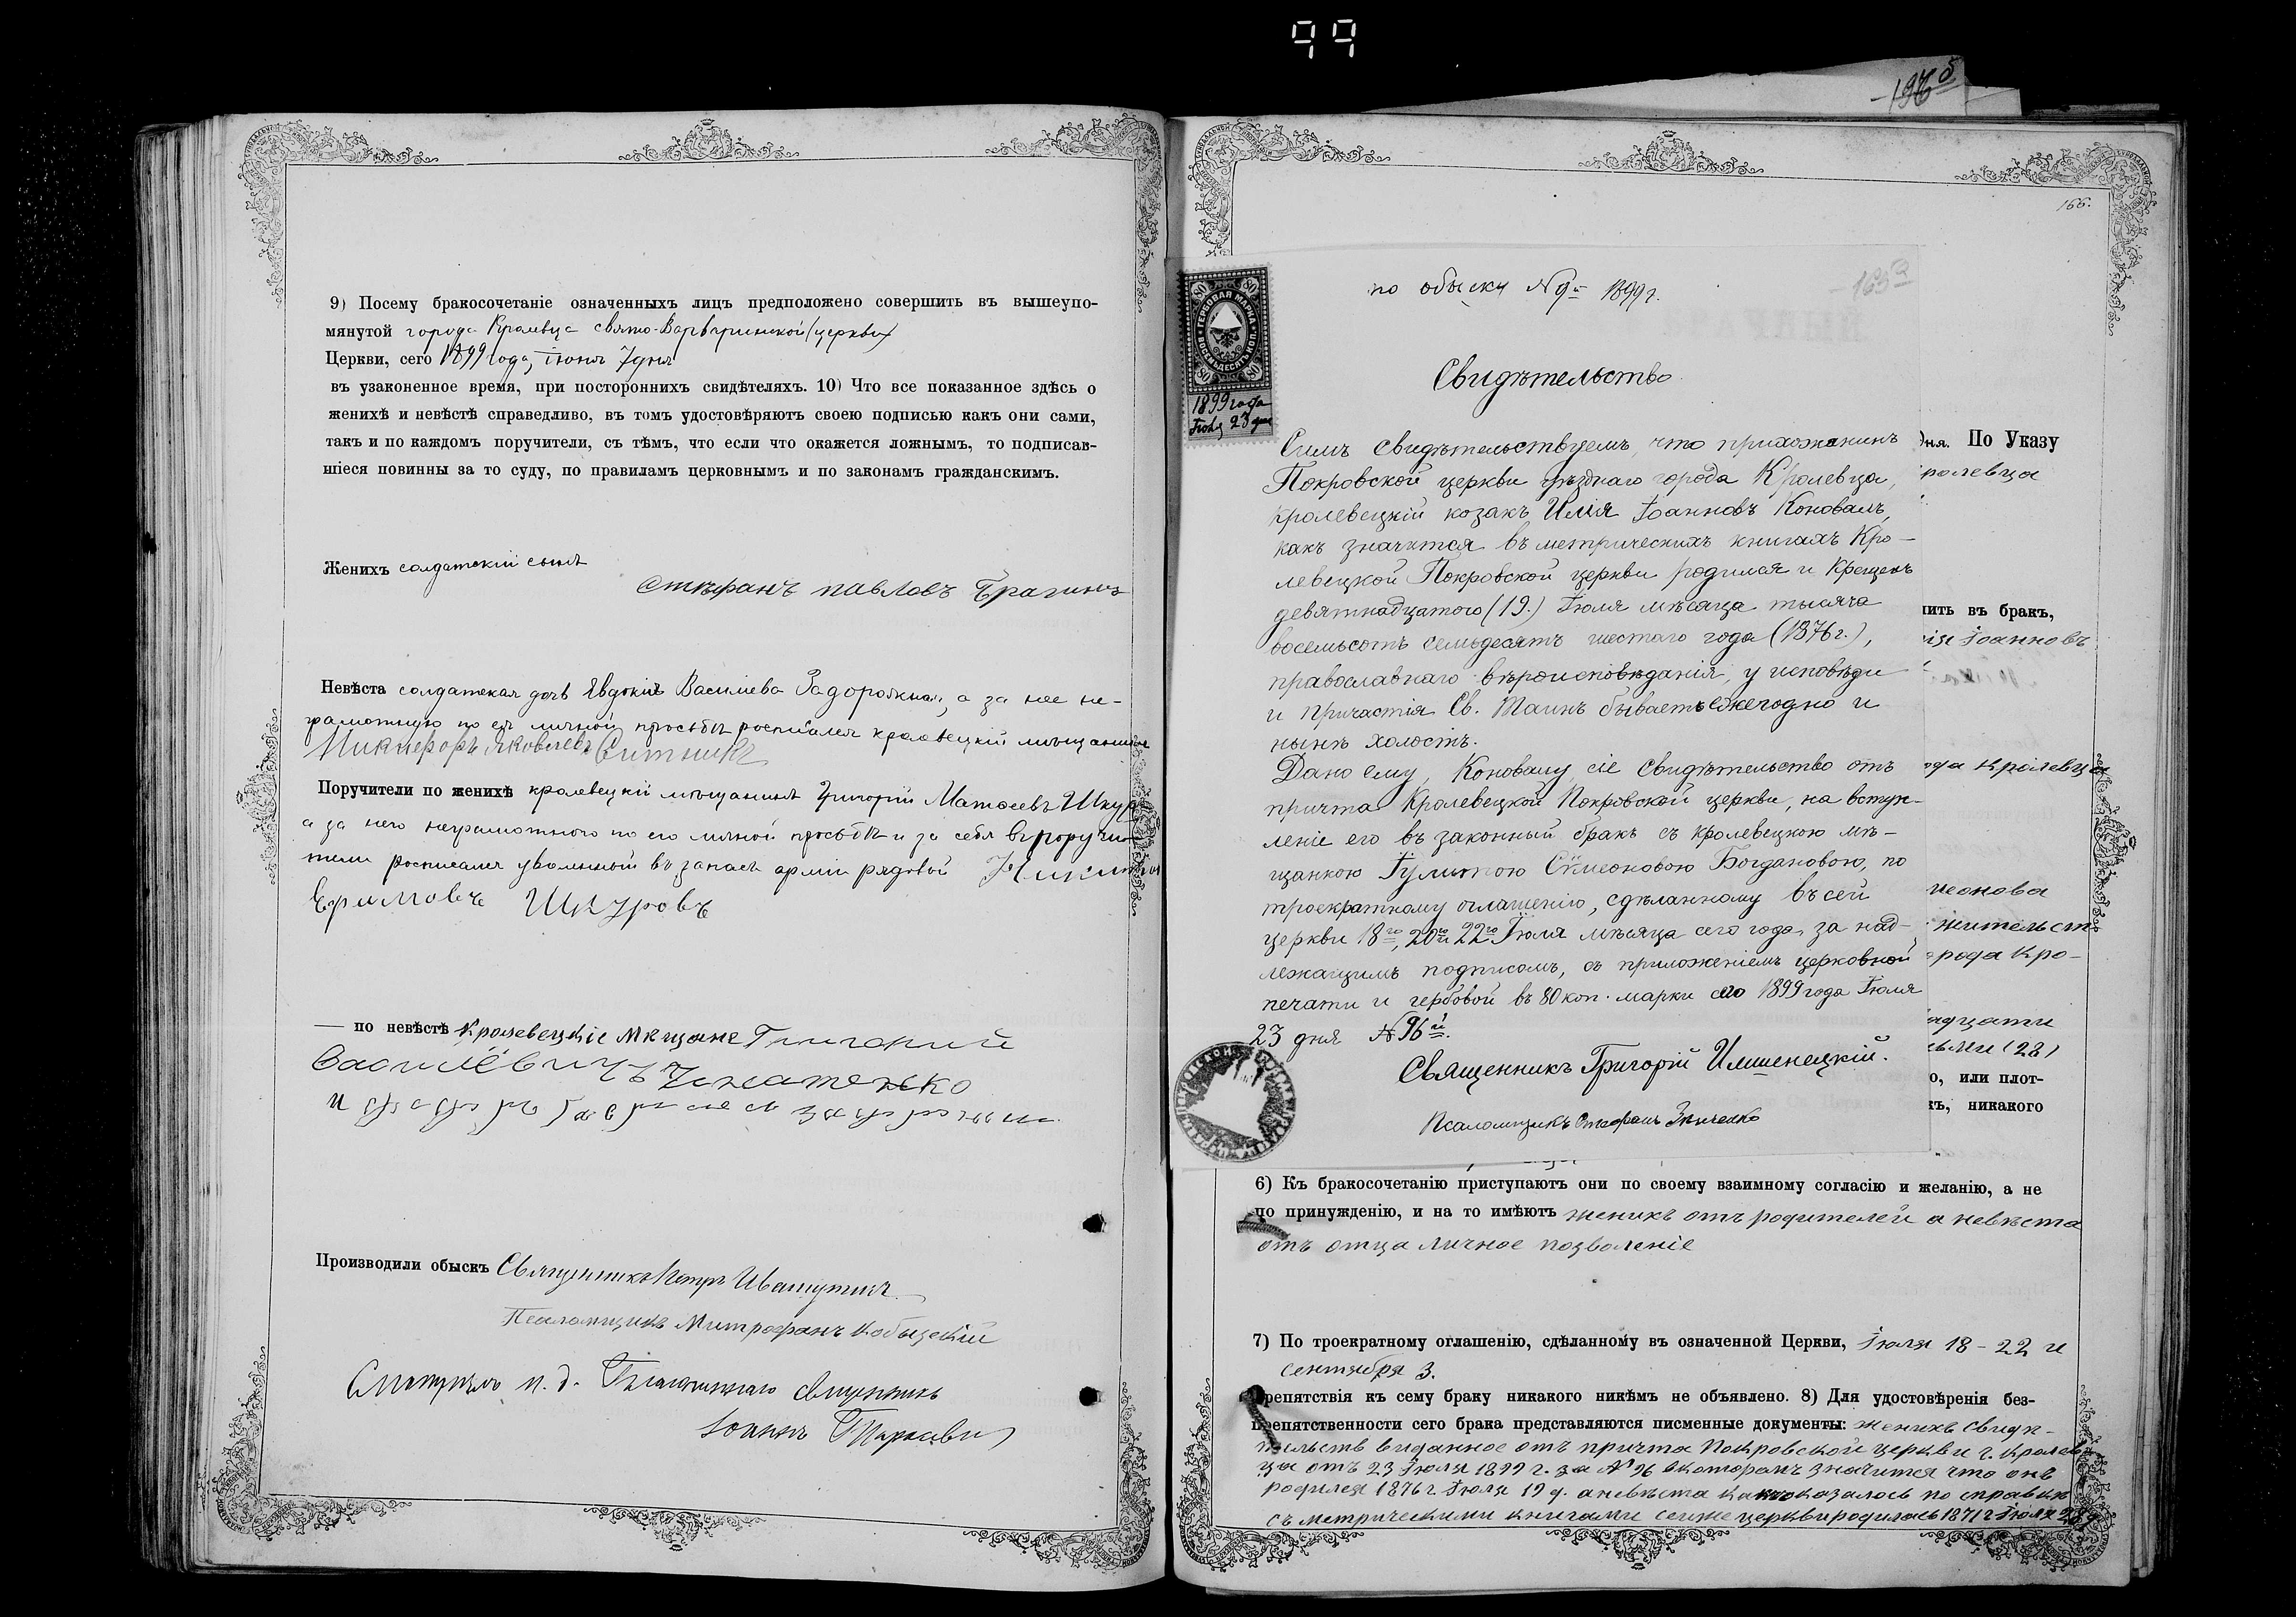 99
196 б
9) Посему бракосочетаніе означенныхъ лицъ предположено совершить въ вышеупо-
мянутой города Кролевца свято-Варваринской (церкви)
Церкви, сего 1899 года, іюня 7 дня
въ узаконенное время, при постороннихъ свидѣтеляхъ. 10) Что все показанное здѣсь о
женихѣ и невѣстѣ справедливо, въ томъ удостовѣряютъ своею подписью какъ они сами,
такъ и по каждомъ поручители, съ тѣмъ, что если что окажется ложнымъ, то подписав-
шіеся повинны за то суду, по правиламъ церковнымъ и по законамъ гражданскимъ.
Женихъ солдатскій сынъ
Стефанъ Павловъ Брагинъ
Невѣста солдатская дочь Евдокія Василіева Задорожная, а за нее не-
грамотную по ея личной просьбѣ росписался кролевецкій мѣщанинъ
Никифоръ Яковлевъ Ситникъ
Поручители по женихѣ кролевецкій мѣщанинъ Григорій Матѳеевъ Шкур
а за него неграмотнаго по его личной просьбѣ и за себя въ поручи-
тели росписался уволенный въ запасъ арміи рядовой Никита
Ефимовъ Шкуровъ
— по невѣстѣ Кролевецкіе мѣщане Григорий
Васильевичъ Игнатенко
и
Производили обыскъ Священникъ Петръ Ивашутичъ
Псаломщикъ Митрофанъ Кобыцскій
Смотрѣлъ и. д. Благочиннаго священникъ
Іоаннъ
166.
163
80 80
ГЕРБОВАЯ МАРКА
ВОСЕМЬДЕСЯТЪ КОП.
80 80
1899 года
Іюля 23 дня
по обыску № 9й 1899 г.
Свидѣтельство.
Симъ свидѣтельствуемъ, что прихожанинъ
Покровской церкви уѣзднаго города Кролевца,
кролевецкій козакъ Илія Іоанновъ Коновалъ,
какъ значится въ метрическихъ книгахъ Кро-
левецкой Покровской церкви родился и крещенъ
девятнадцатого (19.) Іюля мѣсяца тысяча
восемьсотъ семьдесятъ шестаго года (1876 г.),
православнаго вѣроисповѣданія, у исповѣди
и причастія Св. Таинъ бываетъ ежегодно и
нынѣ холостъ.
Дано ему, Коновалу, сіе свидѣтельство отъ
причта Кролевецкой Покровской церкви, на вступ-
леніе его въ законный бракъ съ кролевецкою мѣ-
щанкою Іулитою Сѵмеоновою Богдановою, по
троекратному оглашенію, сдѣланному въ сей
церкви 18го, 20го и 22го Іюля мѣсяца сего года, за над-
лежащимъ подписомъ, съ приложеніемъ церковной
печати и гербовой въ 80 коп. марки сего 1899 года Іюля
23 дня № 96й.
Священникъ Григорій Имшенецкій.
Псаломщикъ Стефанъ Зѣнченко
дня. По Указу
ролевца
ить въ бракъ,
Іоанновъ
ода Кролевца
меонова
жительст
орода Кро-
адцати
(28)
о, или плот-
ъ, никакого
6) Къ бракосочетанію приступаютъ они по своему взаимному согласію и желанію, а не
по принужденію, и на то имѣютъ женихъ отъ родителей а невѣста
отъ отца личное позволеніе
7) По троекратному оглашенію, сдѣланному въ означенной Церкви, Іюля 18 - 22 и
сентября 3.
препятствія къ сему браку никакого никѣмъ не объявлено. 8) Для удостовѣренія без-
препятственности сего брака представляются писменные документы: женихъ свидѣ-
тельств виданное отъ причта Покровской церкви г. Кролев
ца отъ 23 Іюля 1899 г. за № 96 вкоторамъ значится что онъ
родился 1876 г Іюля 19 д. а невѣста какъ оказалось по справкѣ
съ метрическими книгами сей же церкви родилась 1871 г Іюля 28 д